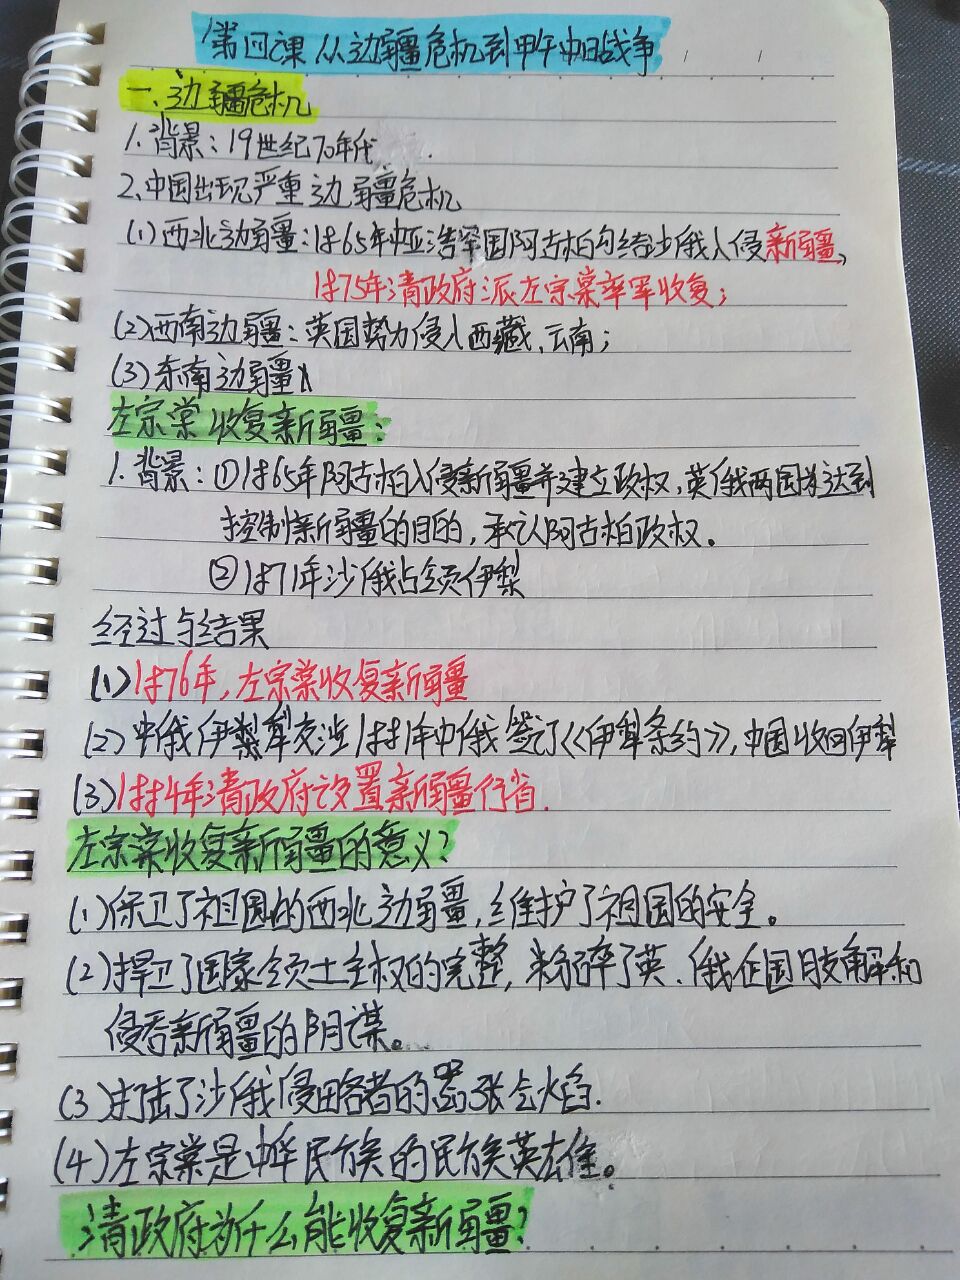 第四课 从边疆危机到甲午中日战争
一、边疆危机
1.背景：19世纪70年代
2.中国出现严重边疆危机
(1)西北边疆：1865年中亚浩罕国阿古柏勾结沙俄入侵新疆，
1875年清政府派左宗棠率军收复；
(2)西南边疆：英国势力侵入西藏、云南；
(3)东南边疆
左宗棠收复新疆：
1.背景：①1865年阿古柏入侵新疆并建立政权，英俄两国为达到
控制新疆的目的，承认阿古柏政权。
②1871年沙俄占领伊犁
经过与结果
(1)1876年，左宗棠收复新疆
(2)中俄伊犁交涉1881年中俄签了《伊犁条约》，中国收回伊犁
(3)1884年清政府设置新疆行省.
左宗棠收复新疆的意义？
(1)保卫了祖国的西北边疆，维护了祖国的安全。
(2)捍卫了国家领土主权的完整，粉碎了英、俄企图肢解和
侵吞新疆的阴谋。
(3)打击了沙俄侵略者的嚣张气焰.
(4)左宗棠是中华民族的民族英雄。
清政府为什么能收复新疆？